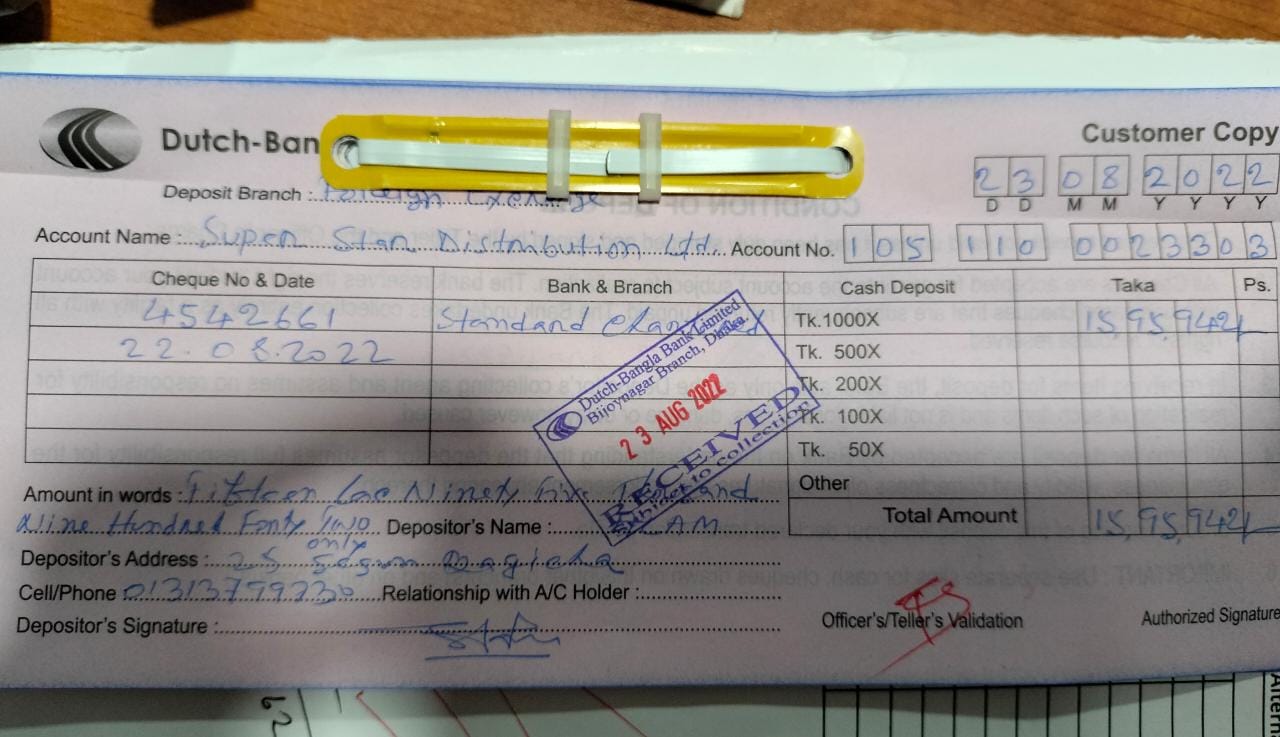 Dutch-Ban
Customer Copy
23 08 2022
D D M M Y Y Y Y
Deposit Branch : Foreign Exchange
Account Name : Super Star Distribution Ltd. Account No. 105 110 0023303
Cheque No & Date Bank & Branch Cash Deposit Taka Ps.
4542661 Standard Chartered Tk.1000X 15,95,942/-
22.08.2022 Tk. 500X
Tk. 200X
Tk. 100X
Tk. 50X
Other
Total Amount 15,95,942/-
Dutch-Bangla Bank Limited
Bijoynagar Branch, Dhaka.
23 AUG 2022
RECEIVED
Subject to collection
Amount in words : Fifteen Lac Ninety Five Thousand
Nine Hundred Forty Two only Depositor's Name :
Depositor's Address : 25 Segun Bagicha
Cell/Phone Relationship with A/C Holder :
Depositor's Signature :
Officer's/Teller's Validation Authorized Signature
CONDITION OF DEPOSIT